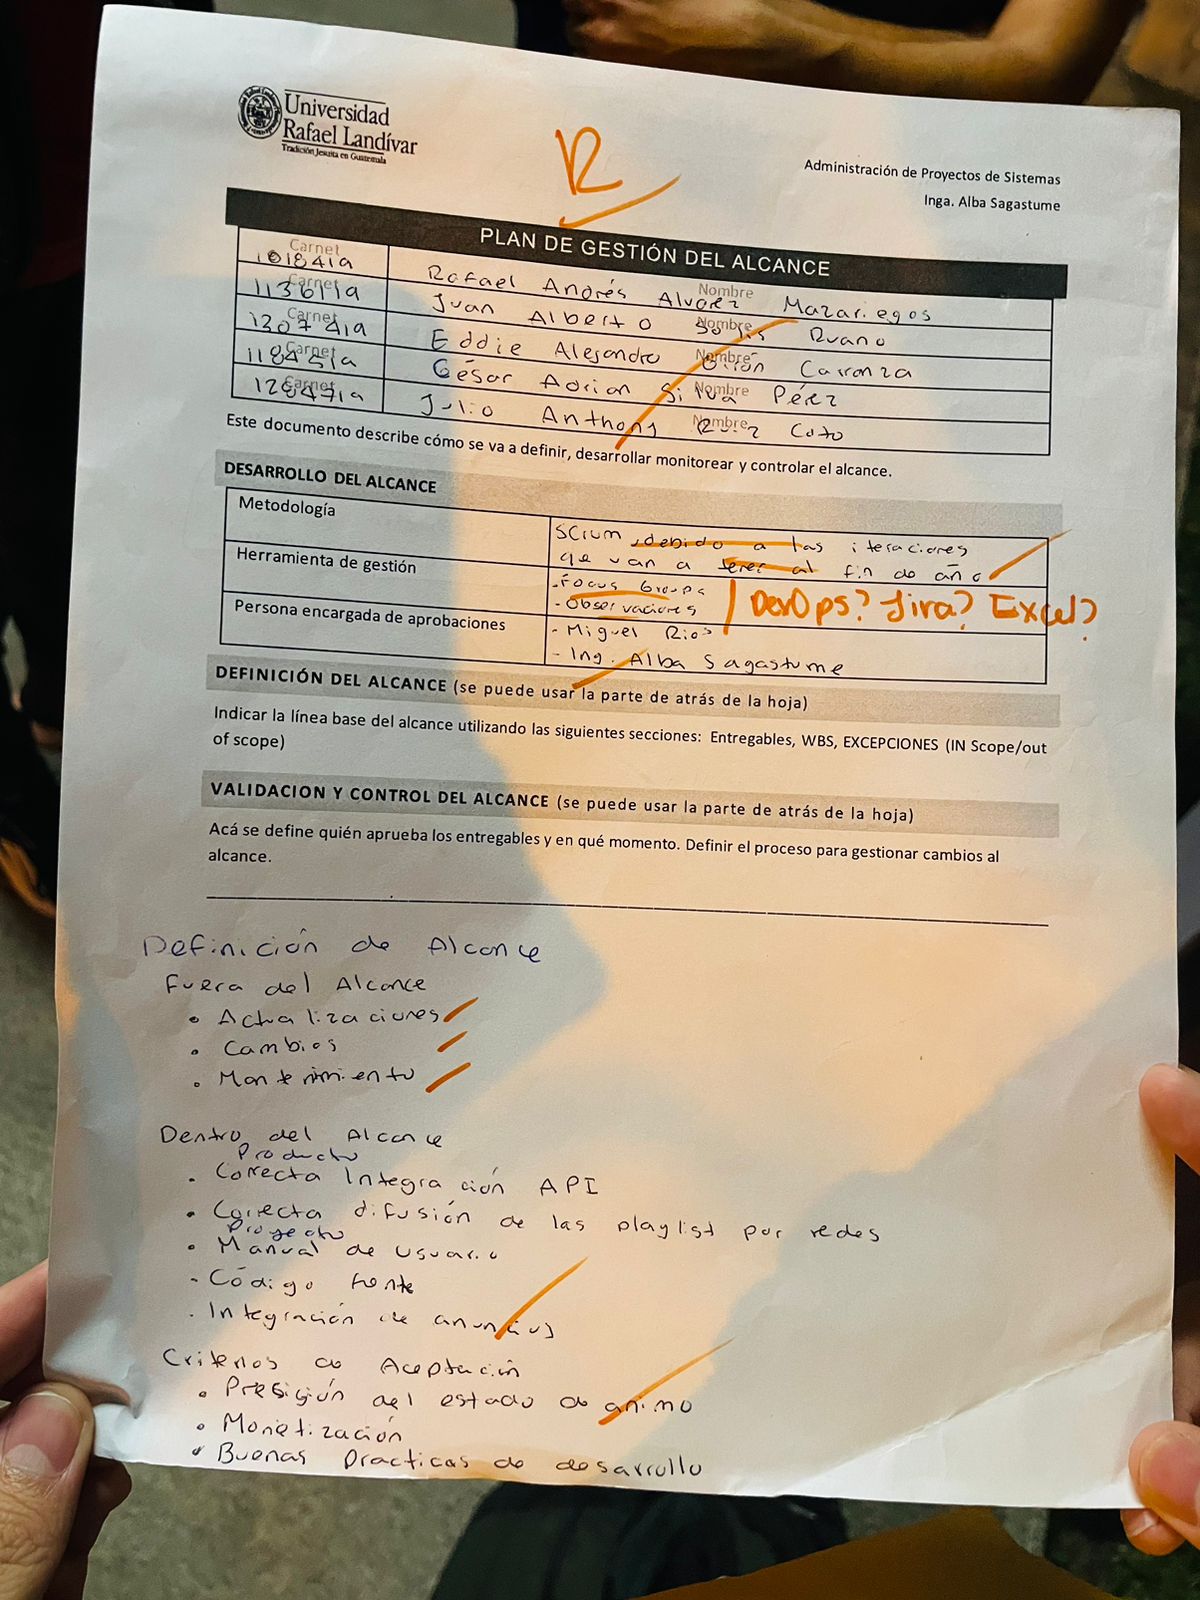 Universidad
Rafael Landívar
Tradición Jesuita en Guatemala
R
Administración de Proyectos de Sistemas
Inga. Alba Sagastume
PLAN DE GESTIÓN DEL ALCANCE
Carnet 1018419 Nombre Rafael Andrés Alvarez Mazariegos
Carnet 1136119 Nombre Juan Alberto Solís Ruano
Carnet 1307419 Nombre Eddie Alejandro Girón Carranza
Carnet 1184519 Nombre César Adrian Silva Pérez
Carnet 1284719 Nombre Julio Anthony Ruiz Coto
Este documento describe cómo se va a definir, desarrollar monitorear y controlar el alcance.
DESARROLLO DEL ALCANCE
Metodología
Scrum, debido a las iteraciones
que van a tener al fin de año
Herramienta de gestión
- Focus Groups
- Observaciones
DevOps? Jira? Excel?
Persona encargada de aprobaciones
- Miguel Rios
- Ing. Alba Sagastume
DEFINICIÓN DEL ALCANCE (se puede usar la parte de atrás de la hoja)
Indicar la línea base del alcance utilizando las siguientes secciones: Entregables, WBS, EXCEPCIONES (IN Scope/out
of scope)
VALIDACION Y CONTROL DEL ALCANCE (se puede usar la parte de atrás de la hoja)
Acá se define quién aprueba los entregables y en qué momento. Definir el proceso para gestionar cambios al
alcance.
Definición de Alcance
Fuera del Alcance
• Actualizaciones
• Cambios
• Mantenimiento
Dentro del Alcance
Producto
• Correcta Integración API
• Correcta difusión de las playlist por redes
Proyecto
• Manual de usuario
- Código fuente
• Integración de anuncios
Criterios de Aceptación
• Presición del estado de animo
• Monetización
• Buenas practicas de desarrollo